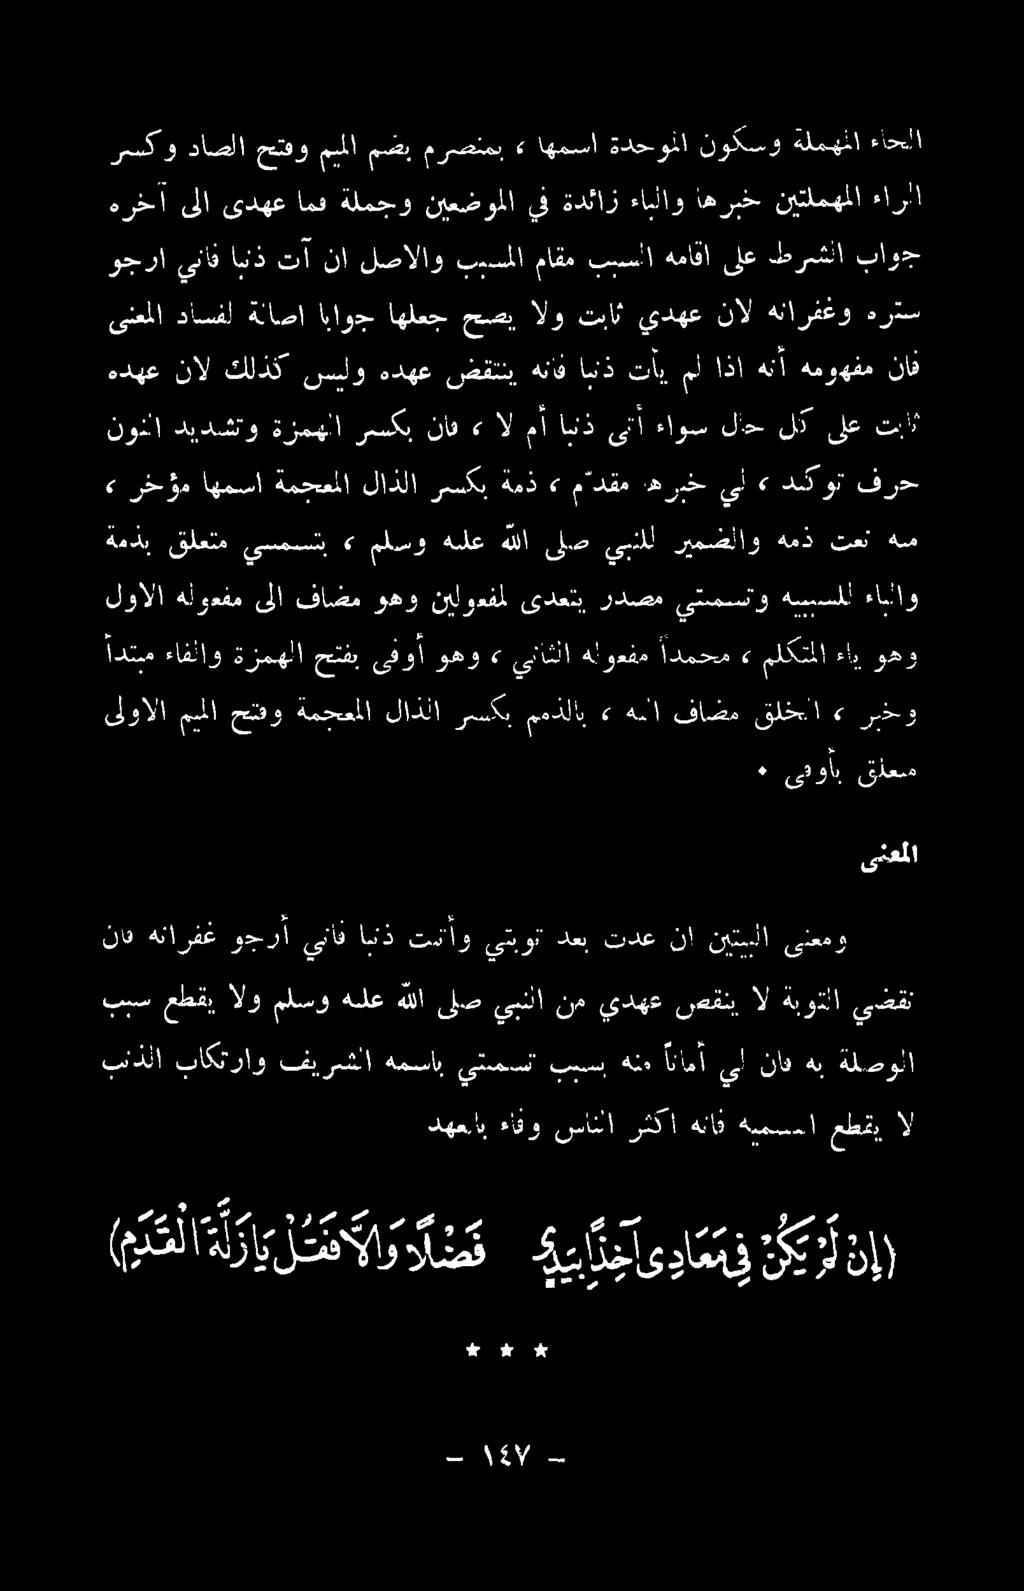 الحاء المهملة وسكون الموحدة اسمها ، بمنصرم بضم الميم وفتح الصاد وكسر
الراء المهملتين خبرها والباء زائدة في الموضعين وجملة فما عهدى الى آخره
جواب الشرط على اقامه السبب مقام المسبب والاصل ان آت ذنبا فاني ارجو
ستره وغفرانه لان عهدي ثابت ولا يصح جعلها جوابا اصالة لفساد المعنى
فان مفهومه أنه اذا لم يأت ذنبا فانه ينتقض عهده وليس كذلك لان عهده
ثابت على كل حال سواء أتى ذنبا أم لا ، فان بكسر الهمزة وتشديد النون
حرف توكيد ، لي خبرها مقدّم ، ذمة بكسر الذال المعجمة اسمها مؤخر ،
منه نعت ذمه والضمير للنبي صلى الله عليه وسلم ، بتسميتي متعلق بذمة
والباء للسببيه وتسميتي مصدر يتعدى لمفعولين وهو مضاف الى مفعوله الاول
وهو ياء المتكلم ، محمداً مفعوله الثاني ، وهو أوفى بفتح الهمزة والفاء مبتدأ
وخبر ، الخلق مضاف اليه ، بالذمم بكسر الذال المعجمة وفتح الميم الاولى
متعلق بأوفى •
المعنى
ومعنى البيتين ان عدت بعد توبتي وأتيت ذنبا فاني أرجو غفرانه فان
نقضي التوبة لا ينقص عهدي من النبي صلى الله عليه وسلم ولا يقطع سبب
الوصلة به فان لي أماناً منه بسبب تسميتي باسمه الشريف وارتكاب الذنب
لا يقطع السميه فانه اكثر الناس وفاء بالعهد
(إِنْ لَمْ يَكُنْ فِي مَعَادِى آخِذًا بِيَدِي فَضْلًا وَإِلَّا فَقُلْ يَا زَلَّةَ الْقَدَمِ)
★ ★ ★
– ١٤٧ –